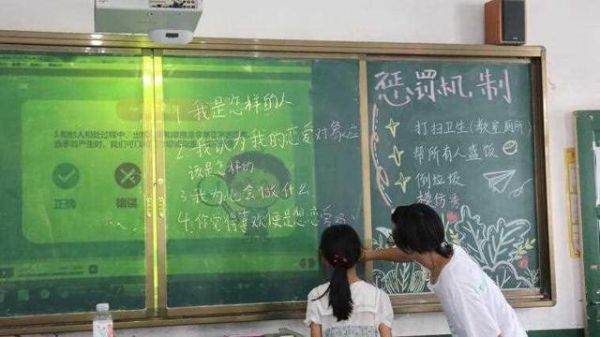 1.我是怎样的人
2.我认为我的恋爱对象应
该是怎样的
3.我为此会做什么
4.你觉得喜欢便是想恋爱吗
惩罚机制
打扫卫生(教室厕所)
帮所有人盛饭
倒垃圾
正确
错误